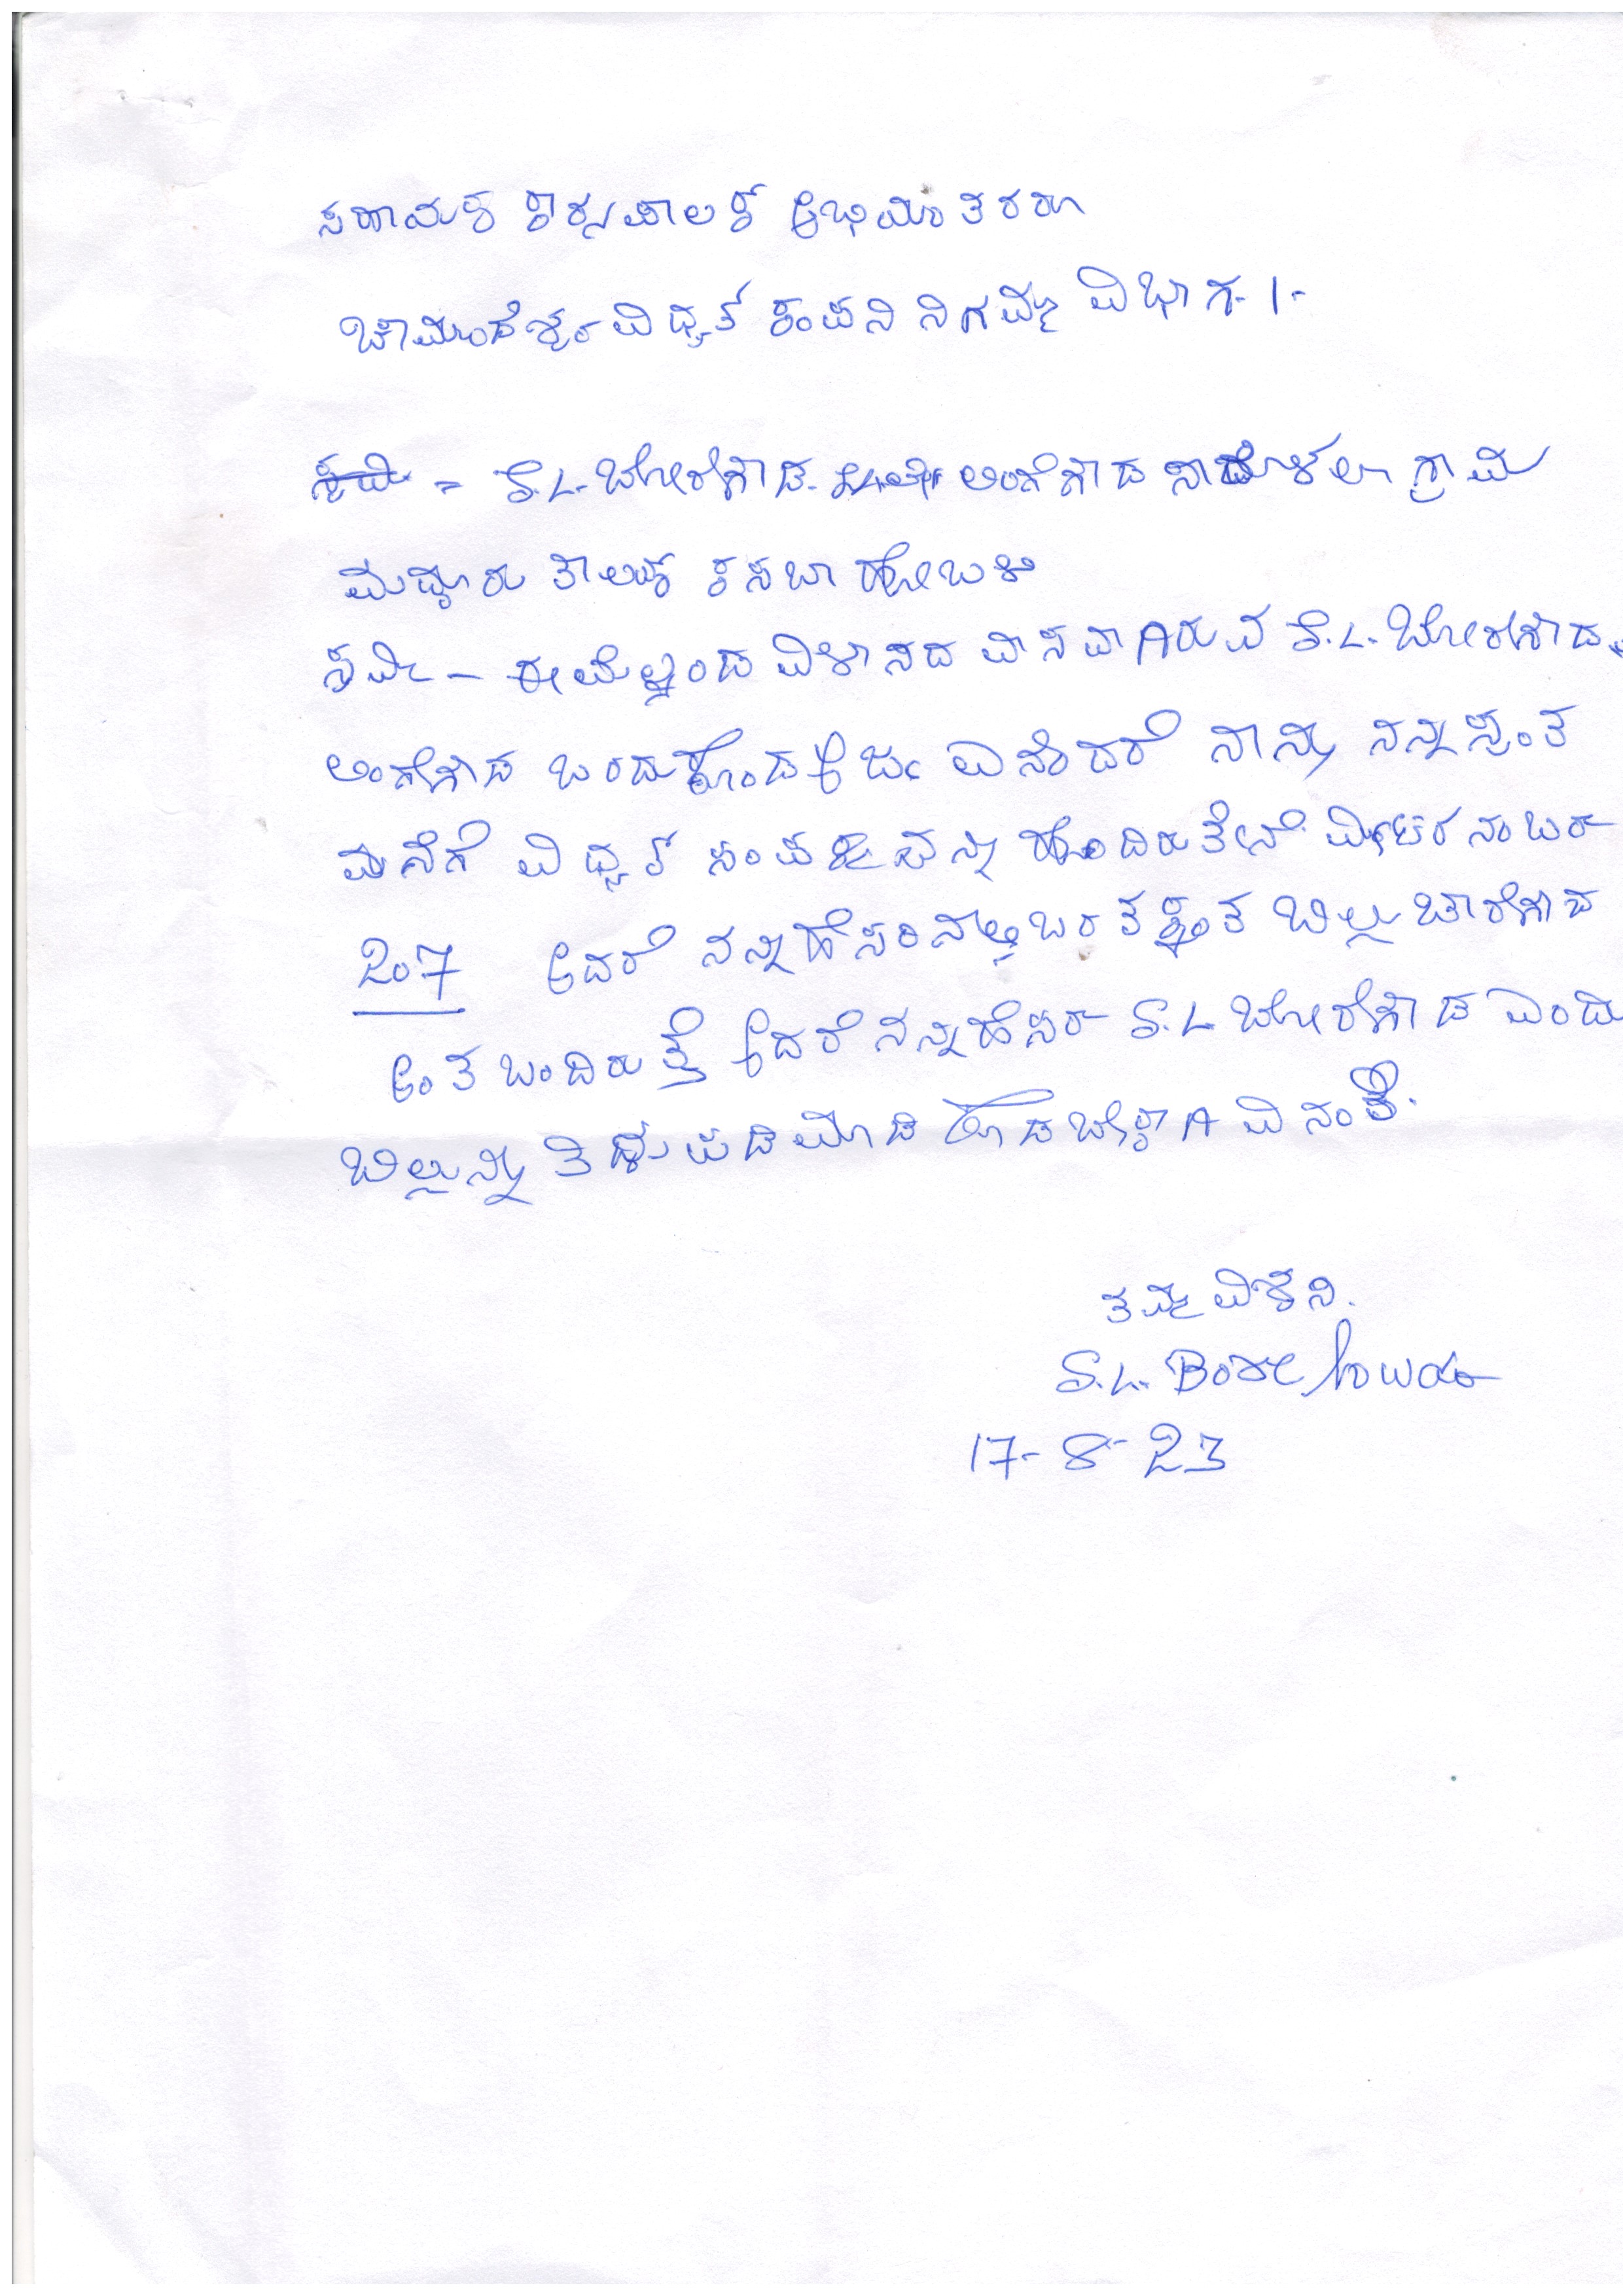 ಸಹಾಯಕ ಕಾರ್ಯಪಾಲಕ್ ಅಭಿಯಂತರರು
ಚಾಮುಂಡೇಶ್ವರ ವಿದ್ಯುತ್ ಕಂಪನಿ ನಿಗಮ ವಿಭಾಗ-1-
= S.L. ಬೋರೇಗೌಡ ಲಿಂಗೇಗೌಡ ಗ್ರಾಮ
ಮದ್ದೂರು ತಾಲ್ಲೂಕ್ ಕಸಬಾ ಹೋಬಳಿ
ಸ್ವಾಮಿ - ಈ ಮೇಲ್ಕಂಡ ವಿಳಾಸದ ವಾಸವಾಗಿರುವ S.L. ಬೋರೇಗೌಡ
ಲಿಂಗೇಗೌಡ ಬರೆದುಕೊಂಡ ಅರ್ಜಿ ಏನೆಂದರೆ ನಾನು ನನ್ನ ಸ್ವಂತ
ಮನೆಗೆ ವಿದ್ಯುತ್ ಸಂಪರ್ಕವನ್ನು ಹೊಂದಿರುತೇನೆ ಮೀಟರ ನಂಬರ್
207 ಆದರೆ ನನ್ನ ಹೆಸರಿನಲ್ಲಿ ಬರತಕ್ಕಂತ ಬಿಲ್ಲು ಚಾರೇಗೌಡ
ಅಂತ ಬಂದಿರುತ್ತೆ ಆದರೆ ನನ್ನ ಹೆಸರ್ S.L ಬೋರೇಗೌಡ ಎಂದು
ಬಿಲ್ಲನ್ನು ತಿದ್ದುಪಡಿ ಮಾಡಿ ಕೊಡಬೇಕಾಗಿ ವಿನಂತಿ.
ತಮ್ಮ ವಿಶ್ವಾಸಿ.
S.L. Bore Gowda
17-8-23